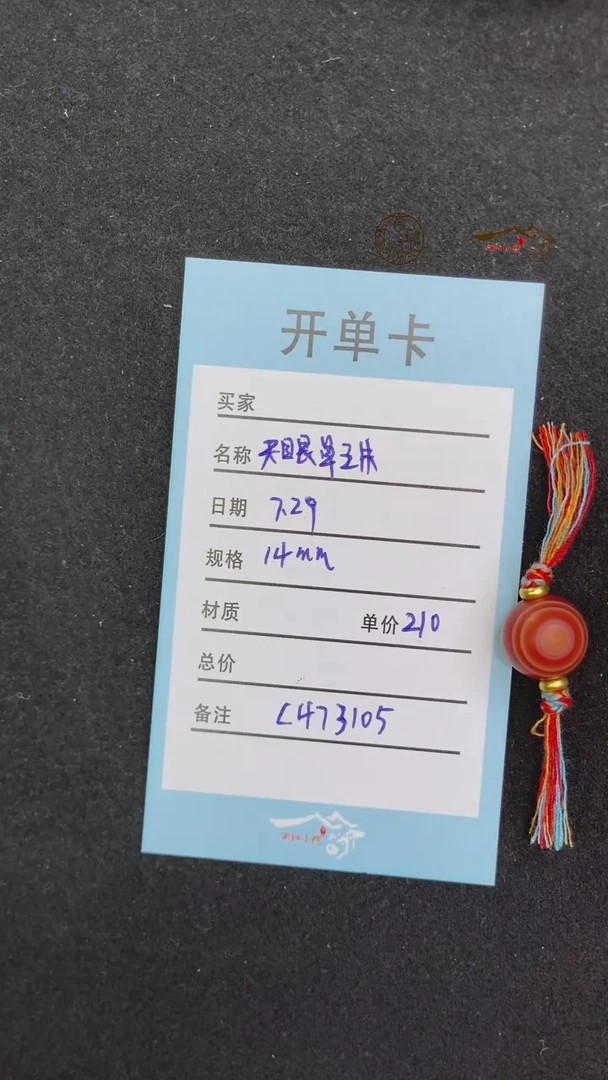 开单卡
买家
名称 天目眼单主珠
日期 7.29
规格 14mm
材质 单价210
总价
备注 C473105